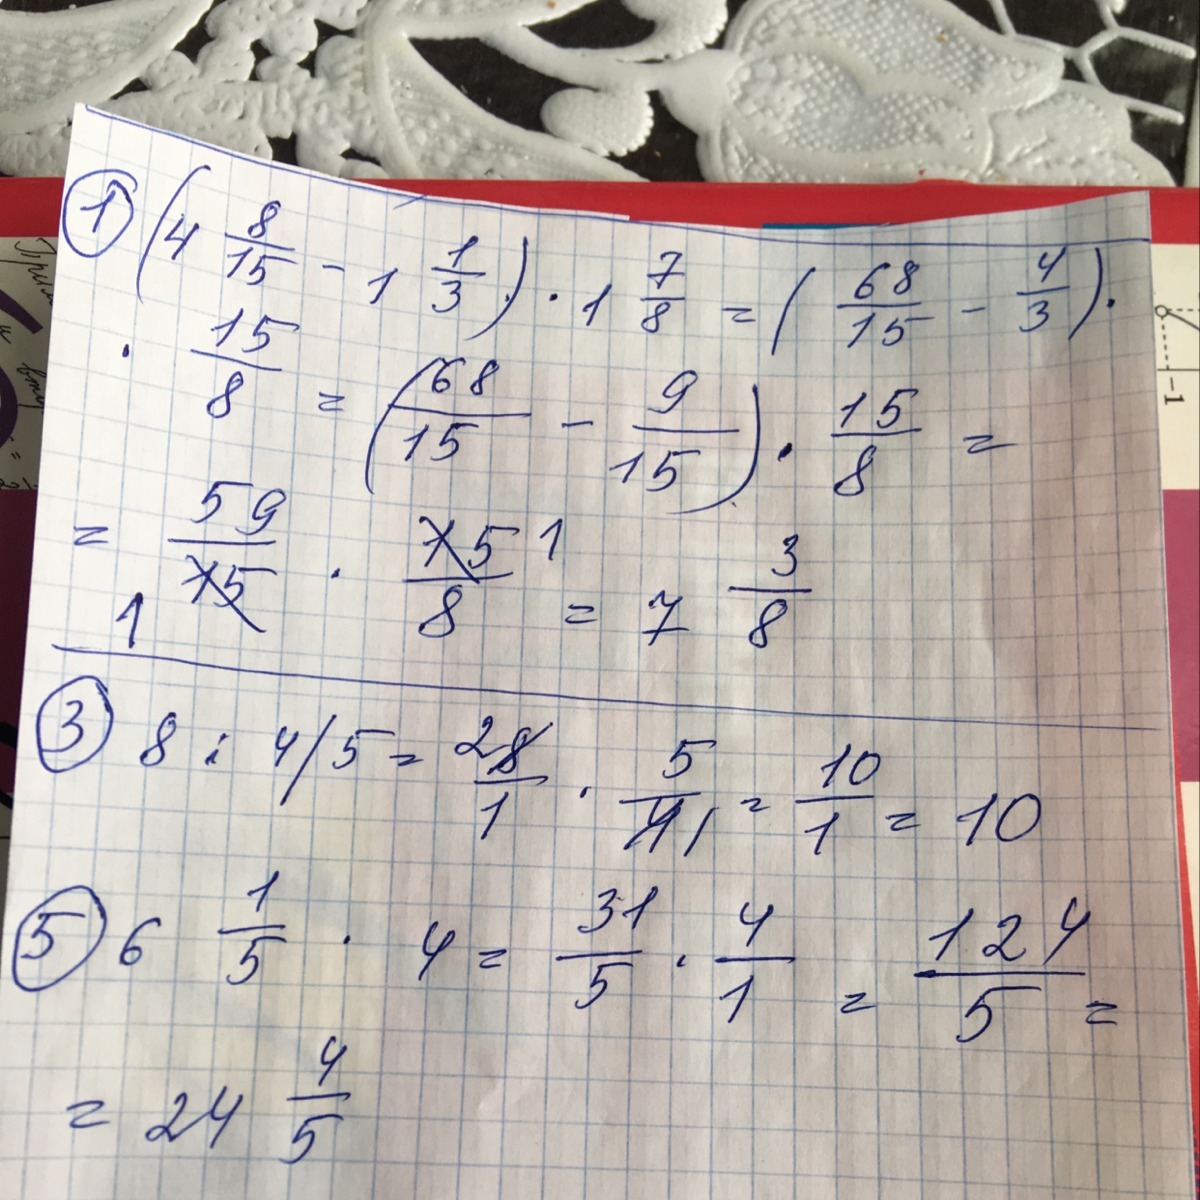 ① (4 8/15 - 1 1/3) · 1 7/8 = (68/15 - 4/3) ·
· 15/8 = (68/15 - 9/15) · 15/8 =
= 59/15 · 15/8 = 7 3/8
1 1
③ 8 : 4/5 = 2 8/1 · 5/4 1 = 10/1 = 10
⑤ 6 1/5 · 4 = 31/5 · 4/1 = 124/5 =
= 24 4/5
-1